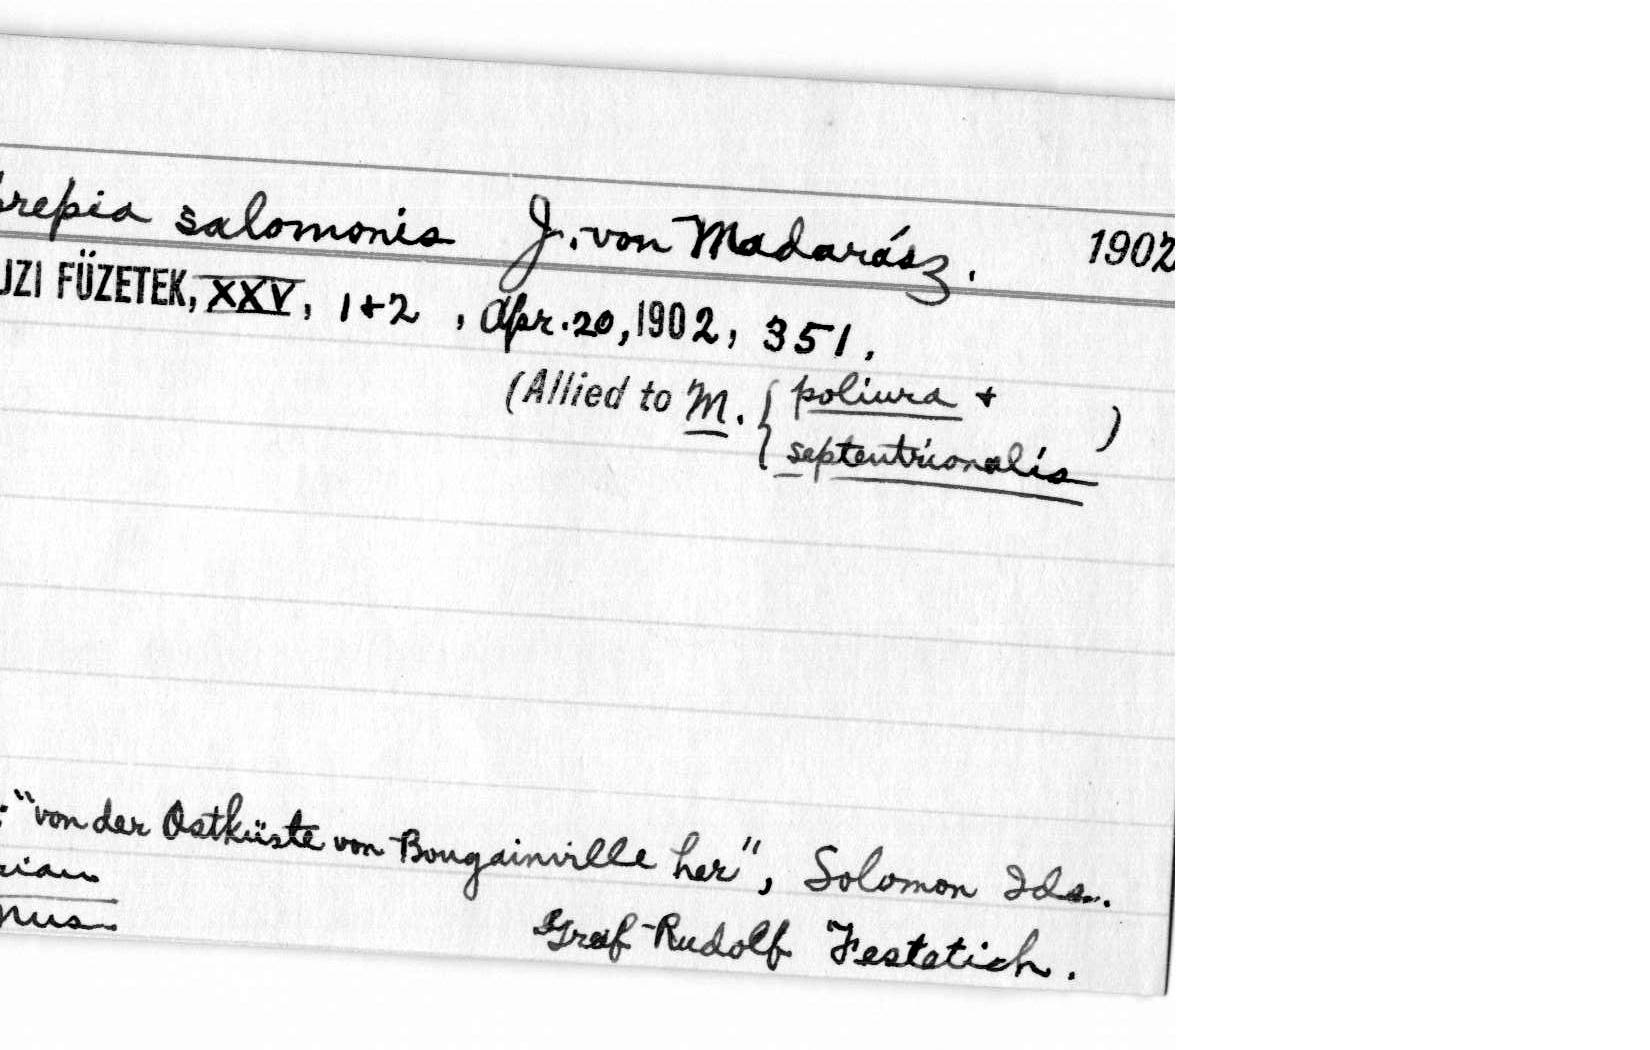 repia salomonis J. von Madarász. 1902
UZI FÜZETEK, XXV, 1+2, Apr. 20, 1902, 351.
(Allied to M. { poliura +
septentrionalis )
: "von der Ostküste von Bougainville her", Solomon Ids.
rian
nus
Graf Rudolf Festetich.